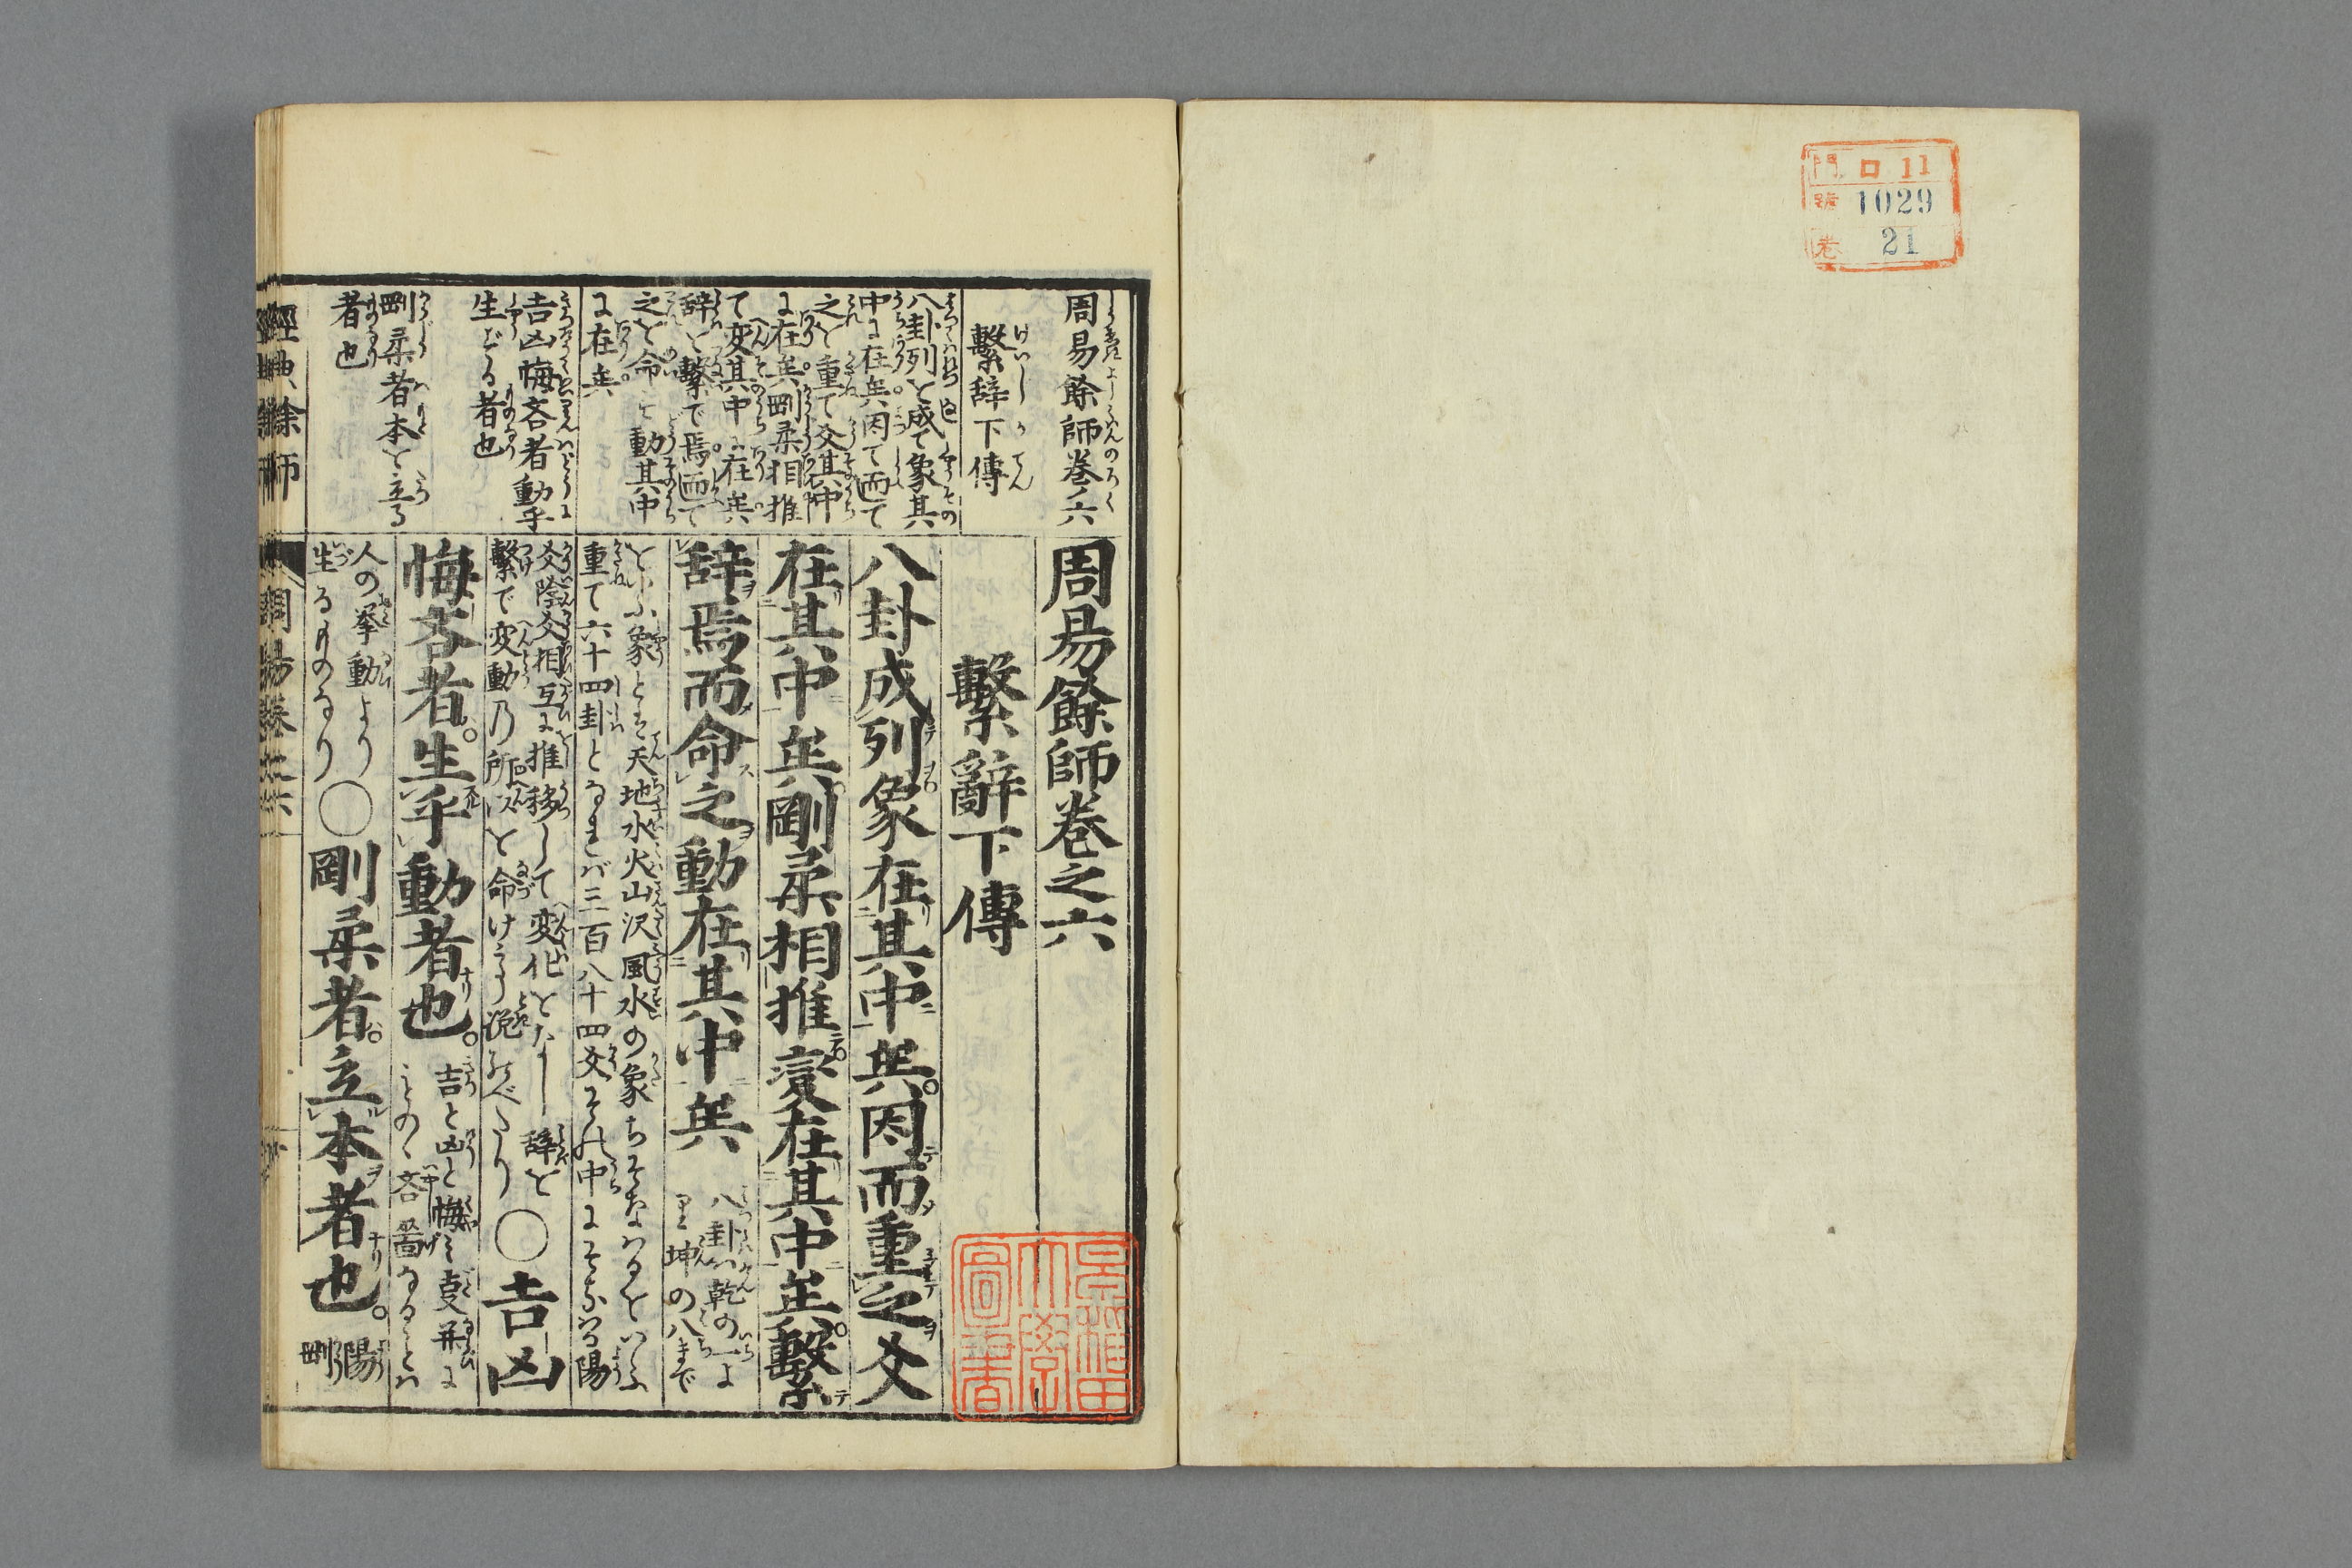 門 ロ 11
號 1029
卷 21
周易餘師巻六
繋辞下傳
八卦列と成て象其
中に在矣因て而て
之を重て爻其中
に在矣剛柔相推
て変其中に在矣
辞を繋て焉而て
之を命て動其中
に在矣
吉凶悔吝者動乎
生ずる者也
剛柔者本を立る
者也
周易餘師卷之六
繫辭下傳
八卦成列象在其中矣因而重之爻
在其中矣剛柔相推變在其中矣繫
辞焉而命之動在其中矣
八卦ハ乾の一よ
り坤の八まで
をいふ象とは天地水火山沢風水の象ちそなハるをいふ
重て六十四卦となれバ三百八十四爻その中にそなハる陽
爻陰爻相互に推移して変化をなし辞を
繋で変動乃所以を命けて説のべたり
〇吉凶
悔吝者生乎動者也
吉と凶と悔と憂并に
ものゝ吝嗇なることハ
人の挙動より
生るものなり
〇剛柔者立本者也
陽
剛
經典餘師
周易卷之六
早稲田
大學
圖書